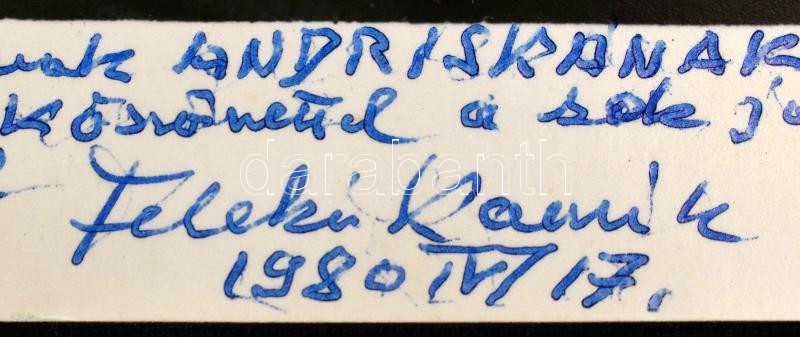 nak ANDRISKÁNAK
köszönettel a sok jó
Teleki
1980 IV/17.
darabanth